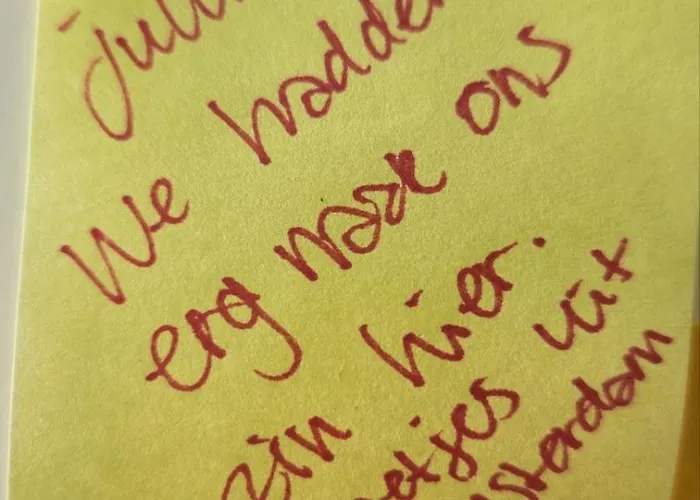 We hadden
erg naar ons
zin hier.
etjes uit
sterdam